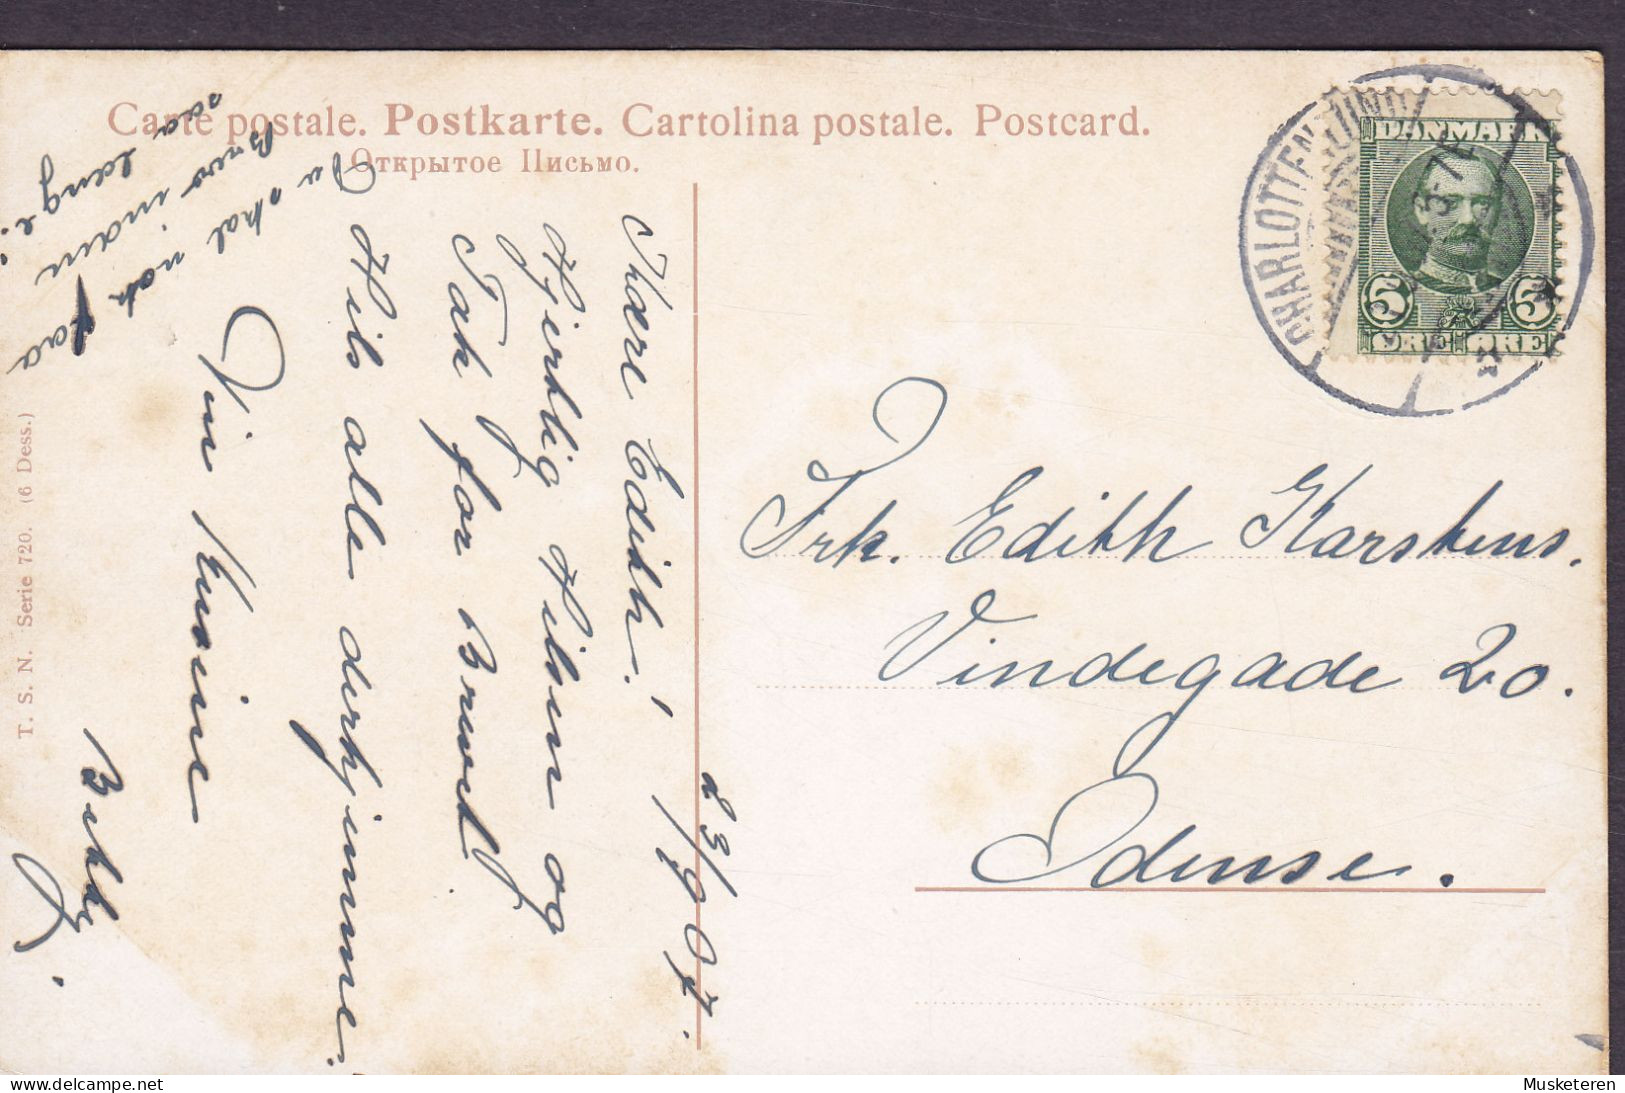 Carte postale. Postkarte. Cartolina postale. Postcard.
Открытое Письмо.
CHARLOTTENLUND
DANMARK
5 5
ØRE ØRE
Frk. Edith Karstens.
Vindegade 20.
Odense.
23/9 07.
Kære Edith!
Hjertlig Hilsen og
Tak for Brevet
Hils alle derhjemme
Din Kusine
Du skal nok faa
Brev inden
saa længe.
T. S. N. Serie 720. (6 Dess.)
Musketeren